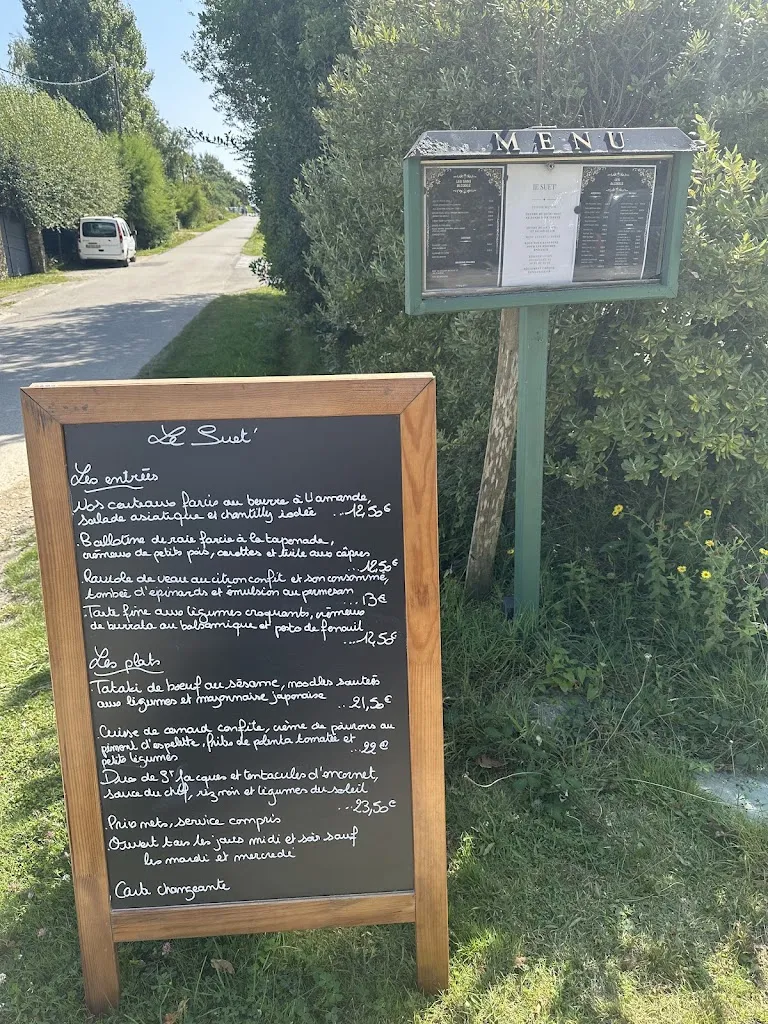 MENU
LE SUET
Le Suet'
Les entrées
Nos couteaux farcis au beurre à l'amande,
salade asiatique et chantilly iodée ...12,50€
Ballotine de raie farcie à la tapenade,
crémeux de petits pois, carottes et tuile aux câpres
12,50€
Raviole de veau au citron confit et son consommé,
tombée d'épinards et émulsion au parmesan
...13€
Tarte fine aux légumes croquants, crémeux
de burrata au balsamique et pesto de fenouil
...12,50€
Les plats
Tataki de bœuf au sésame, noodles sautées
aux légumes et mayonnaise japonaise ...21,50€
Cuisse de canard confite, crème de poivrons au
piment d'espelette, frites de polenta tomatée et
petits légumes ...22€
Duo de St Jacques et tentacules d'encornet,
sauce du chef, riz noir et légumes du soleil
...23,50€
Prix nets, service compris
Ouvert tous les jours midi et soir sauf
les mardi et mercredi
Carte changeante